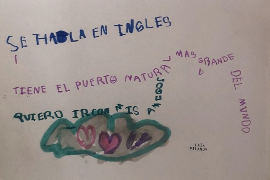 SE HABLA EN INGLES
TIENE EL PUERTO NATURAL MAS GRANDE DEL MUNDO
QUIERO IR